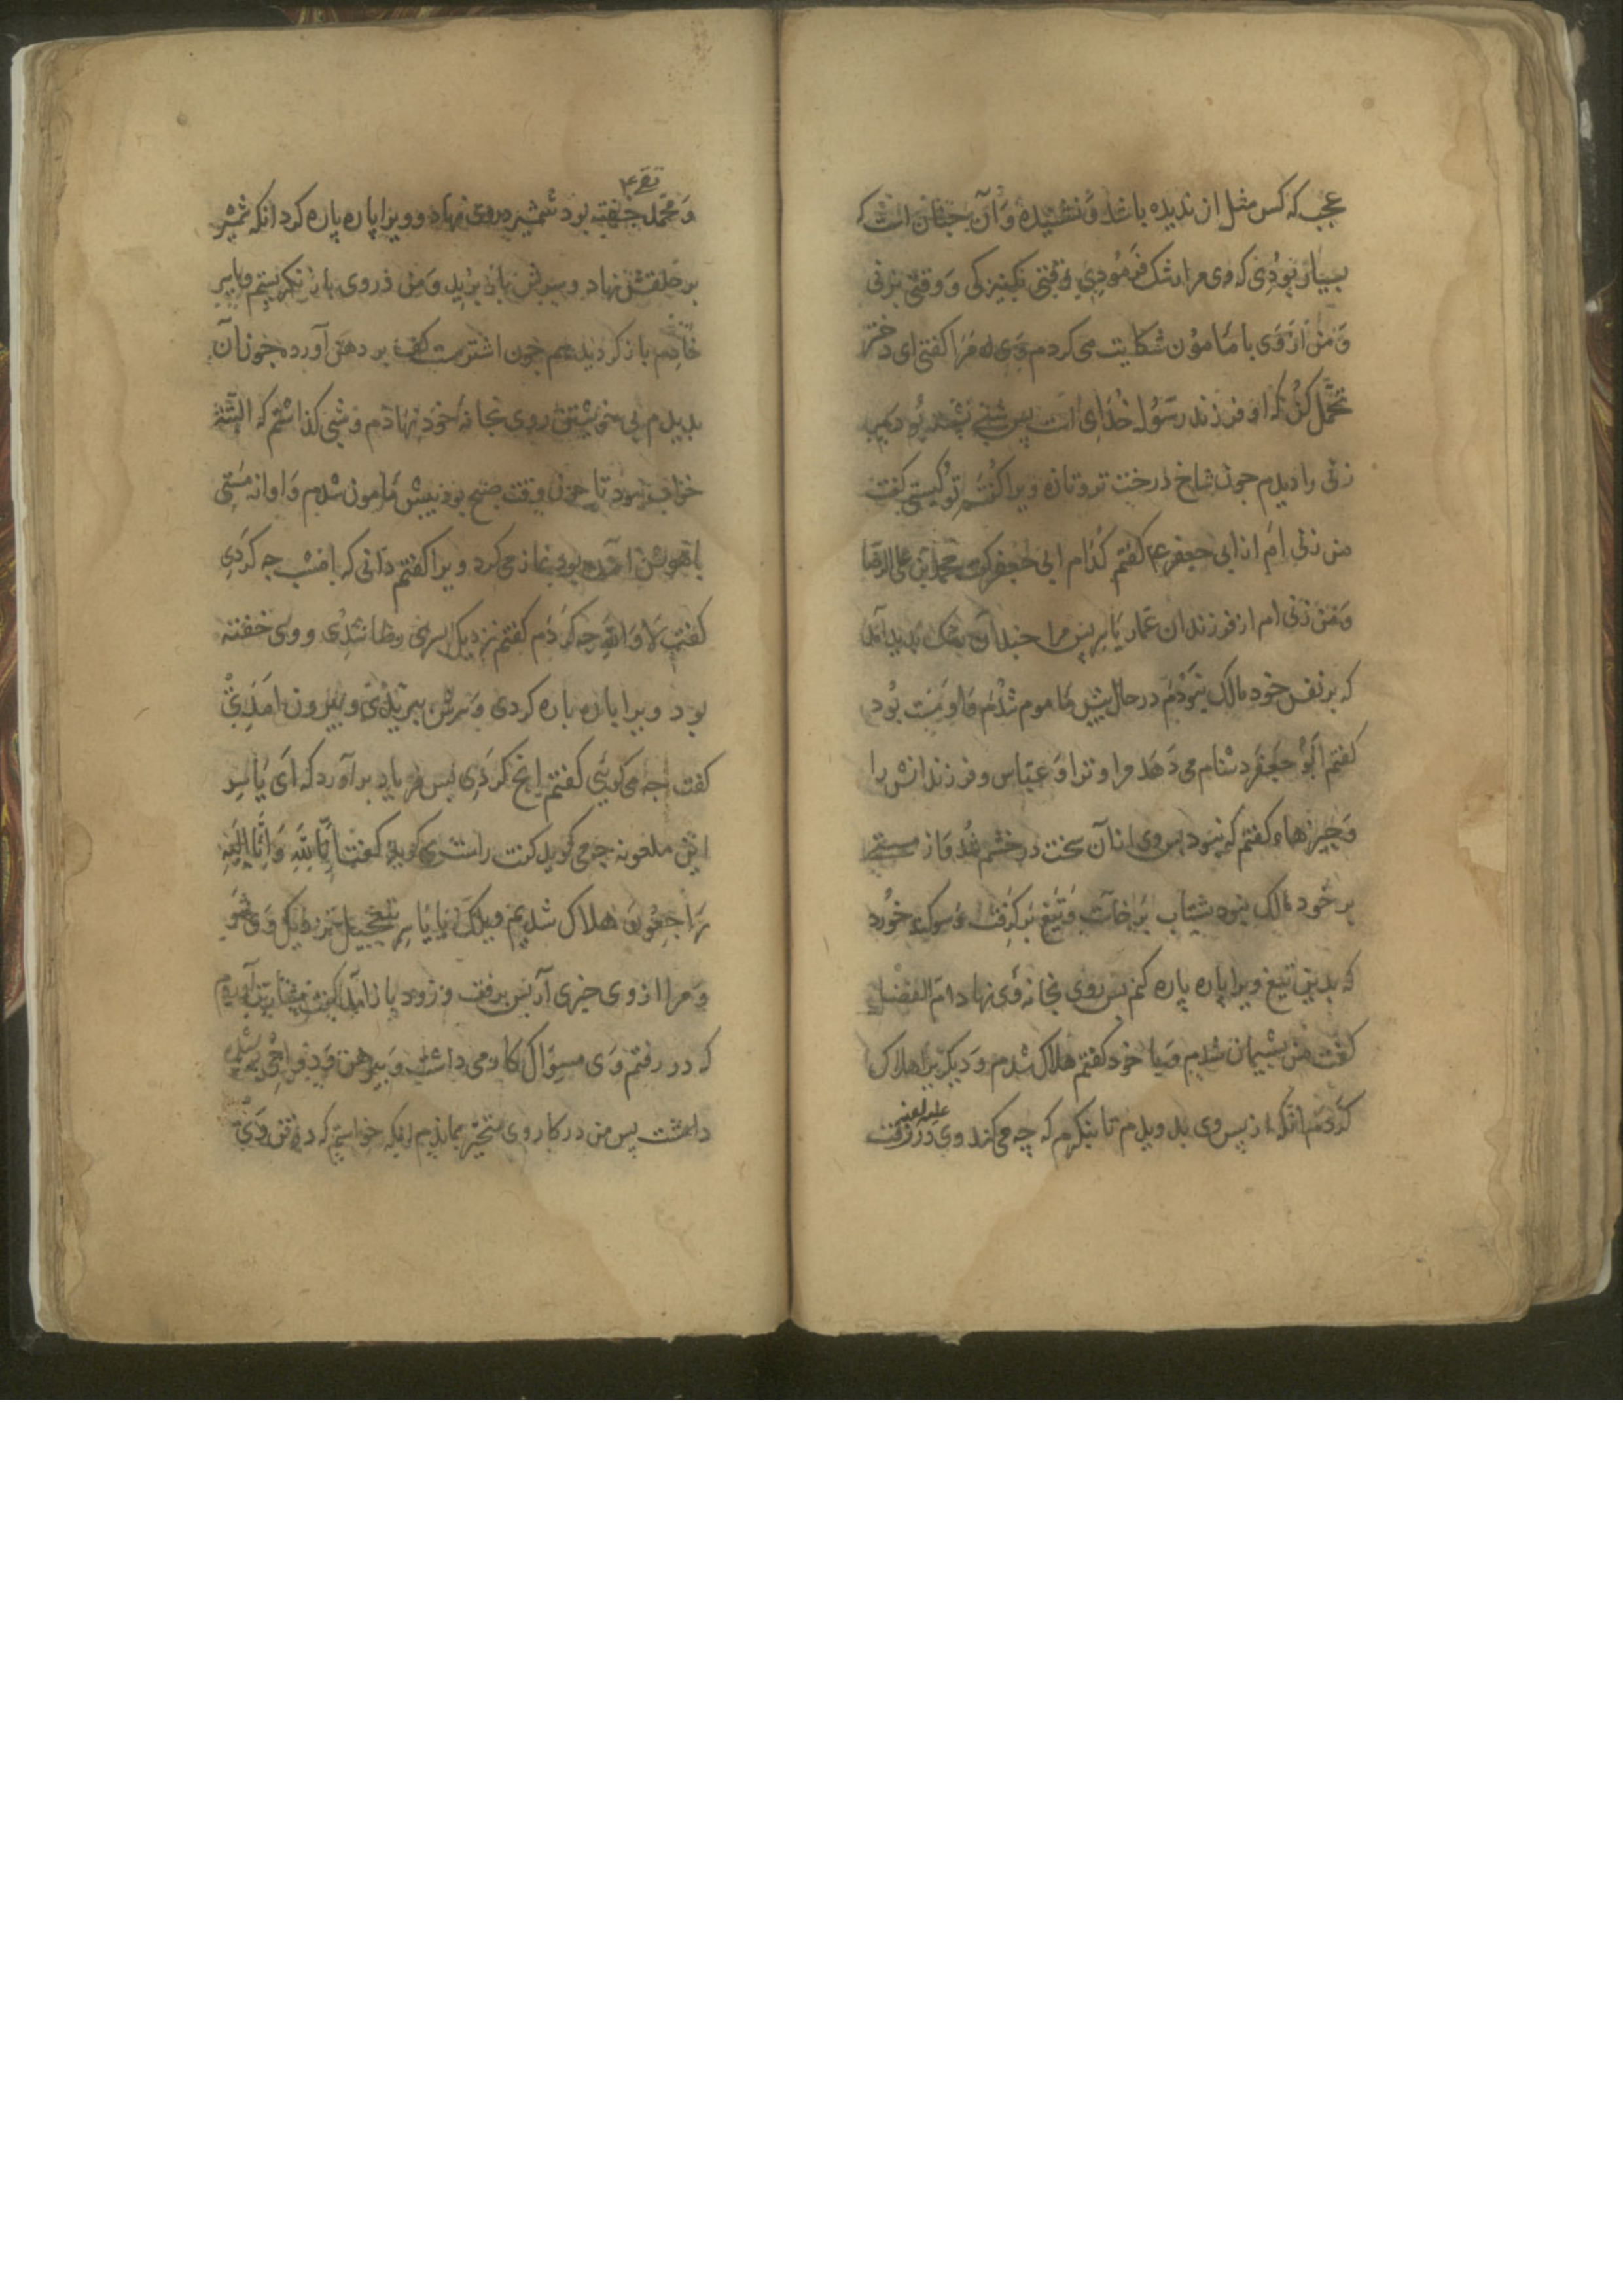 عجب که کس مثل ان ندیده باشد و نشنیده و آن جنان است که
بسیار بودی که وی مرا رشک فرمودی وقتی بکنیزکی و وقتی بزنی
و من از وی با مامون شکایت می کردم وی مرا کفتی ای دختر
تحمل کن که او فرزند رسول خدای است پس شبی نشسته بودم
زنی را دیدم جون شاخ درخت تر و تازه ویرا کفتم تو کیستی کفت
من زنی ام از ابی جعفر ع کفتم کدام ابی جعفر کفت محمد بن علی الرضا
و من زنی ام از فرزندان عمار یاسر پس مرا جندان رشک بدید آمد
که بر نفس خود مالک نبودم در حال پیش مامون شدم و او مست بود
کفتم ابو جعفر دشنام می دهد مرا و ترا و عباس و فرزندانش را
و چیزهاء کفتم که نبود پس وی از آن سخت در خشم شد و از مستی
بر خود مالک نبود شتاب برخاست و تیغ بر کرفت و سوکند خورد
که بدین تیغ ویرا پاره پاره کنم پس روی بخانه وی نهاد ام الفضل
کفت من پشیمان شدم و با خود کفتم هلاک شدم و دیکریرا هلاک
کردم انکه از پس وی بدویدم تا بنکرم که چه می کند وی علیه لعنه در رفت
و محمد تقی ع خفته بود شمشیر در وی نهاد و ویرا پاره پاره کرد انکه شمشیر
بر حلقش نهاد و سرش باز برید و من در وی باز نکریستم و یاسر
خادم باز کردید هم جون اشتر مست کف بر دهن آورده جون آن
بدیدم بی خویشتن روی بخانه خود نهادم و شبی کذاشتم که البته
خواب نبود تا جون وقت صبح بود پیش مامون شدم و او از مستی
باهوش آمده بود نماز می کرد ویرا کفتم دانی که امشب چه کردی
کفت لا والله چه کردم کفتم نزدیک پسر رضا شدی و وی خفته
بود ویرا پاره پاره کردی و سرش ببریدی و بیرون آمدی
کفت چه می کویی کفتم انج کردی پس فریاد برآورد که ای یاسر
این ملعونه چه می کوید کفت راست می کوید کفت انا لله و انا الیه
راجعون هلاک شدیم ویلک یا یاسر بتعجیل نزدیک وی شو
و مرا از وی خبری آر پس برفت و زود باز آمد کفت بشارت آوردم
که در رفتم و وی مسواک کار می داشت و پیرهن و دواجی
داشت پس من در کار وی متحیر بماندم انکه خواستم که در تن وی